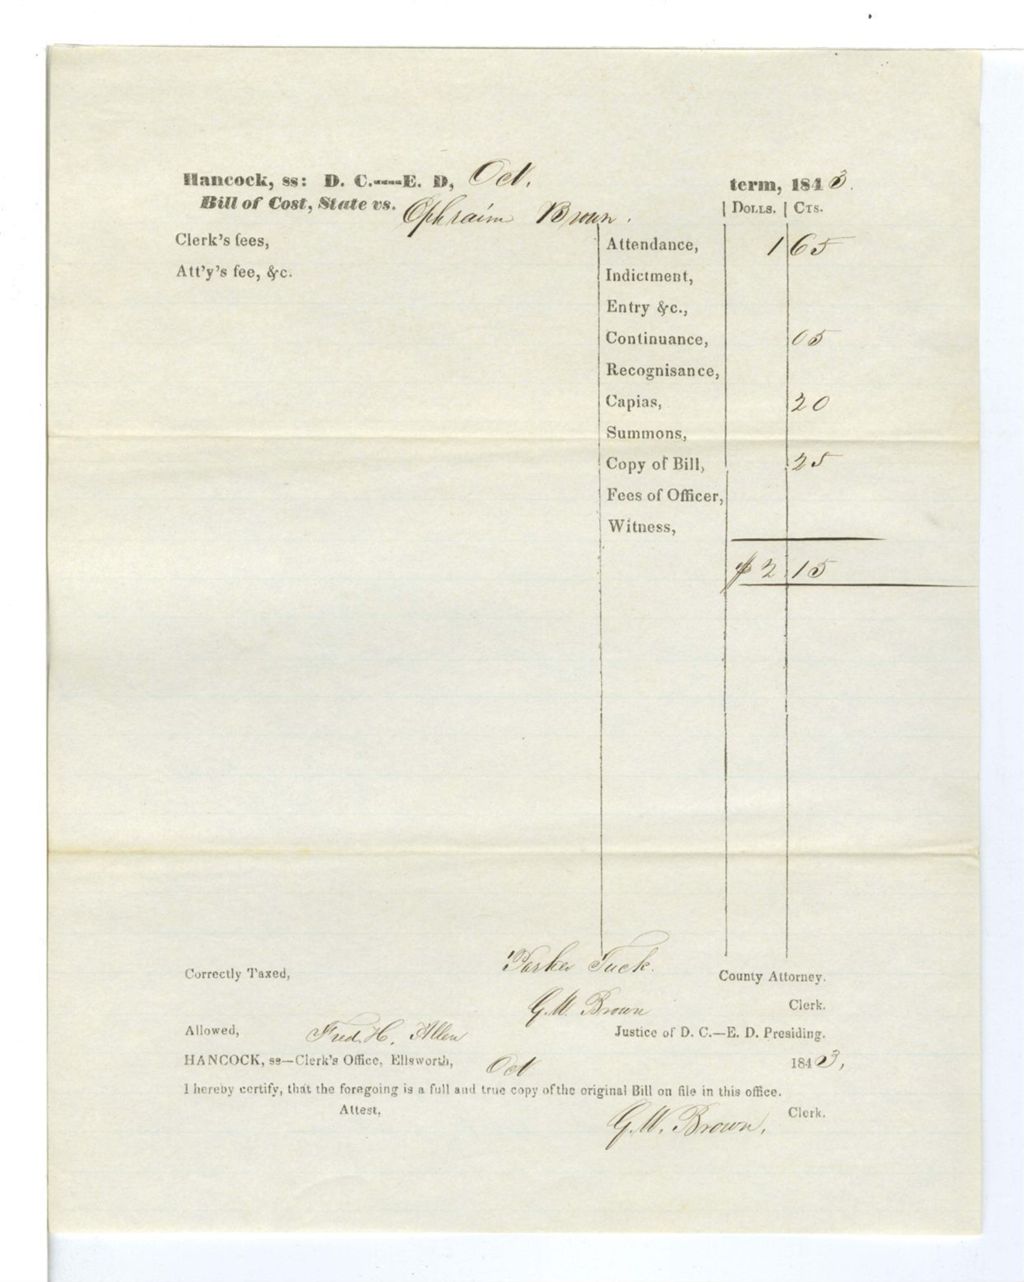 Hancock, ss: D. C.----E. D, Oct. term, 1843.
Bill of Cost, State vs. Ephraim Brown. | Dolls. | Cts.
Clerk's fees, Attendance, 1 65
Att'y's fee, &c. Indictment,
Entry &c.,
Continuance, 05
Recognisance,
Capias, 20
Summons,
Copy of Bill, 25
Fees of Officer,
Witness,
$2 15
Correctly Taxed, Parker Tuck. County Attorney.
G.W. Brown Clerk.
Allowed, Fred. H. Allen Justice of D. C.—E. D. Presiding.
HANCOCK, ss—Clerk's Office, Ellsworth, Oct 1843,
I hereby certify, that the foregoing is a full and true copy of the original Bill on file in this office.
Attest, G.W. Brown, Clerk.